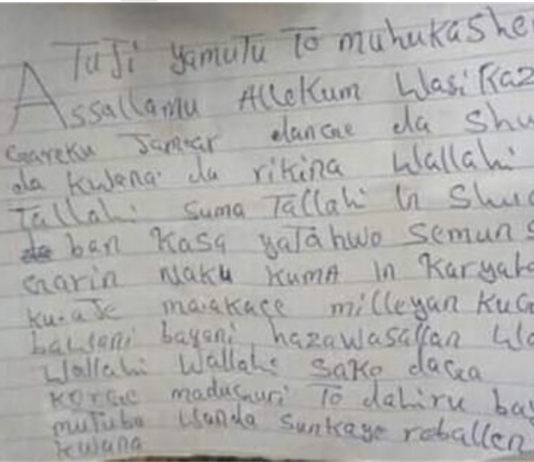 Tuji yamutu To muhukashe
Assallamu Allekum wasikaz
Gareku Jamaar dancae da Shu
da kwana da rikina Wallahi
Tallahi suma Tallahi in Shu
ban kasa yatahwo semun s
Garin Naku kuma in karyata
ku milleyan kuG
bayani hazawasallan Wa
Wallahi Wallahi sako daga
madu To dahiru bay
mutubu wanda sunkayo raballen
kwana